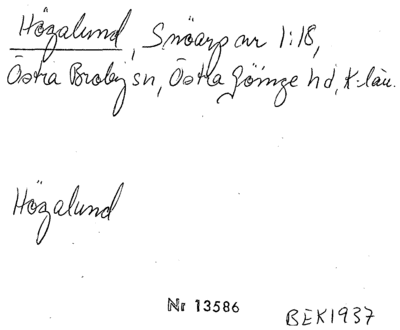 Högalund, Snöarp nr 1:18,
Östra Broby sn, Östra Göinge hd, K-län.
Högalund
Nr 13586
BEK1937